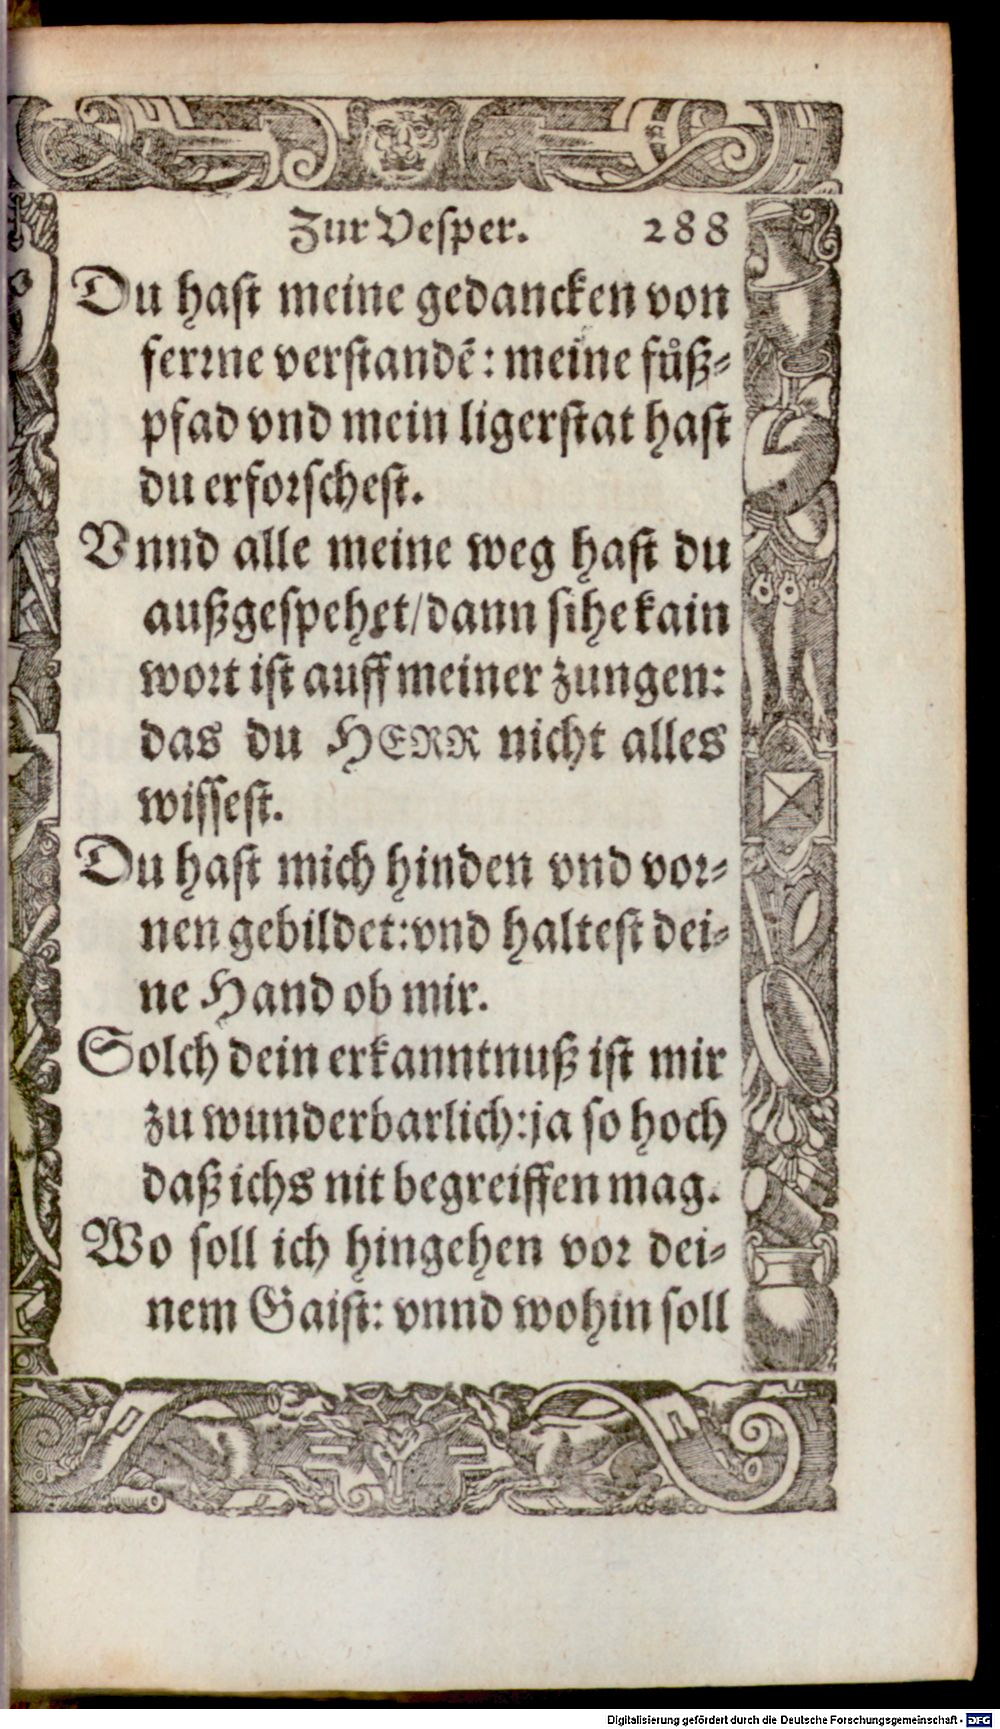 Zur Vesper. 288
Du hast meine gedancken von
ferrne verstandẽ: meine fuͤß-
pfad vnd mein ligerstat hast
du erforschest.
Vnnd alle meine weg hast du
außgespehet/dann sihe kain
wort ist auff meiner zungen:
das du HERR nicht alles
wissest.
Du hast mich hinden vnd vor-
nen gebildet:vnd haltest dei-
ne Hand ob mir.
Solch dein erkanntnuß ist mir
zu wunderbarlich:ja so hoch
daß ichs nit begreiffen mag.
Wo soll ich hingehen vor dei-
nem Gaist: vnnd wohin soll
Digitalisierung gefördert durch die Deutsche Forschungsgemeinschaft - DFG